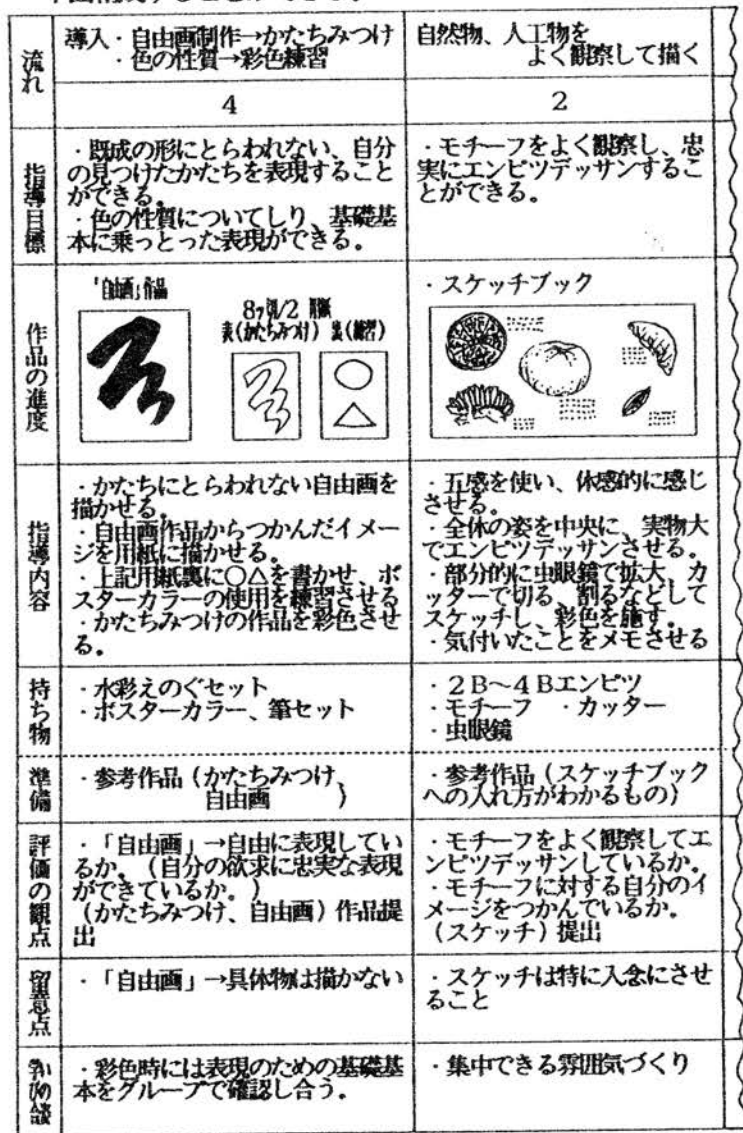 流れ
導入・自由画制作→かたちみつけ
・色の性質→彩色練習
自然物、人工物を
よく観察して描く
4
2
指導目標
・既成の形にとらわれない、自分
の見つけたかたちを表現すること
ができる。
・色の性質についてしり、基礎基
本に乗っとった表現ができる。
・モチーフをよく観察し、忠
実にエンピツデッサンするこ
とができる。
作品の進度
「自由画」作品
8ッ切/2
表(かたちみつけ) 裏(練習)
・スケッチブック
指導内容
・かたちにとらわれない自由画を
描かせる。
・自由画作品からつかんだイメー
ジを用紙に描かせる。
・上記用紙裏に○△を書かせ、ポ
スターカラーの使用を練習させる
・かたちみつけの作品を彩色させ
る。
・五感を使い、体感的に感じ
させる。
・全体の姿を中央に、実物大
でエンピツデッサンさせる。
・部分的に虫眼鏡で拡大、カ
ッターで切る、割るなどして
スケッチし、彩色を施す。
・気付いたことをメモさせる
持ち物
・水彩えのぐセット
・ポスターカラー、筆セット
・2B～4Bエンピツ
・モチーフ ・カッター
・虫眼鏡
準備
・参考作品(かたちみつけ、
自由画 )
・参考作品(スケッチブック
への入れ方がわかるもの)
評価の観点
・「自由画」→自由に表現してい
るか。(自分の欲求に忠実な表現
ができているか。)
(かたちみつけ、自由画)作品提
出
・モチーフをよく観察してエ
ンピツデッサンしているか。
・モチーフに対する自分のイ
メージをつかんでいるか。
(スケッチ)提出
留意点
・「自由画」→具体物は描かない
・スケッチは特に入念にさせ
ること
・彩色時には表現のための基礎基
本をグループで確認し合う。
・集中できる雰囲気づくり